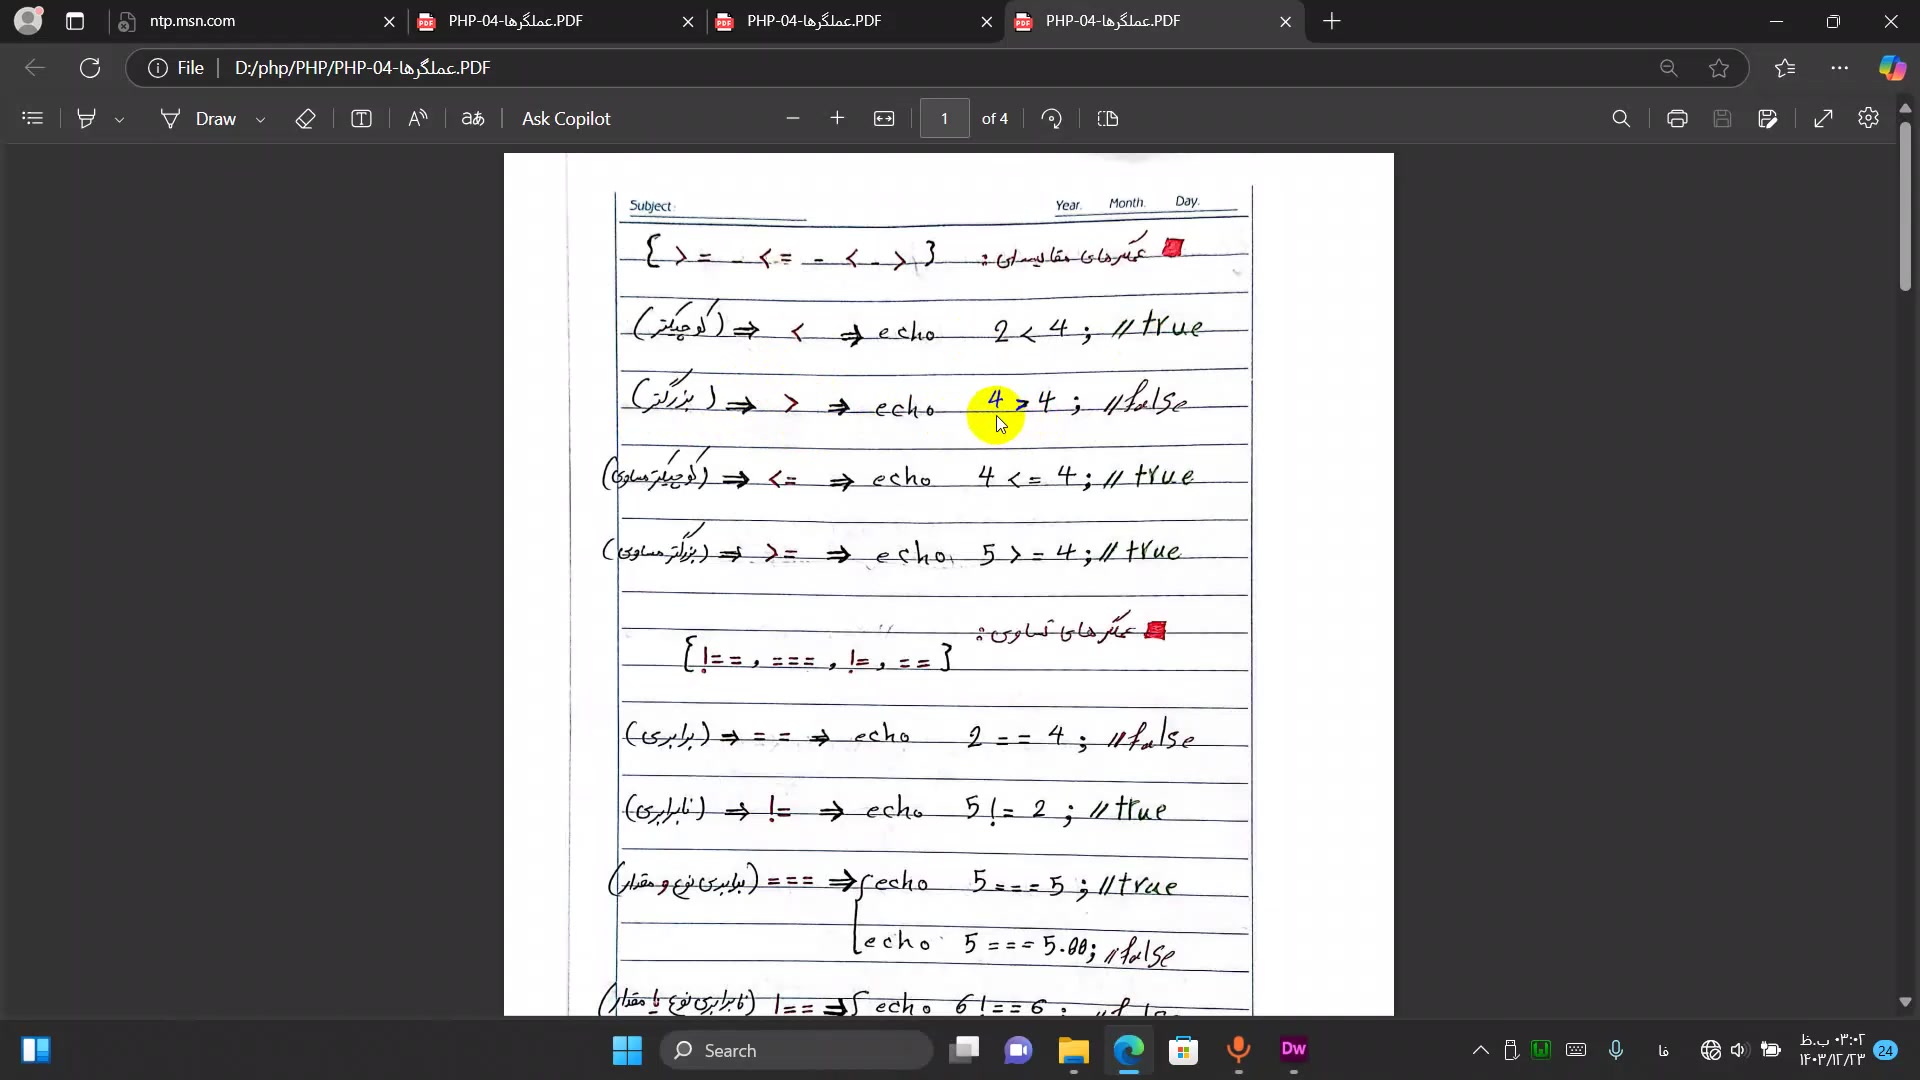 ntp.msn.com
PHP-04-عملگرها.PDF
PHP-04-عملگرها.PDF
PHP-04-عملگرها.PDF
File
D:/php/PHP/PHP-04-عملگرها.PDF
Draw
Ask Copilot
1 of 4
Subject:
Year. Month. Day.
عملگرهای مقایسه‌ای: { > = - < = - < - > }
(کوچیکتر) ⇒ < ⇒ echo 2 < 4 ; // true
(بزرگتر) ⇒ > ⇒ echo 4 > 4 ; // false
(کوچیکتر مساوی) ⇒ <= ⇒ echo 4 <= 4 ; // true
(بزرگتر مساوی) ⇒ >= ⇒ echo 5 >= 4 ; // true
عملگرهای تساوی:
{ !== , === , != , == }
(برابری) ⇒ == ⇒ echo 2 == 4 ; // false
(نابرابری) ⇒ != ⇒ echo 5 != 2 ; // true
(برابری نوع و مقدار) === ⇒ echo 5 === 5 ; // true
echo 5 === 5.00; // false
(نابرابری نوع یا مقدار) !== ⇒ echo 6 !== 6 ; // false
Search
Dw
فا
۰۳:۰۲ ب.ظ
۱۴۰۳/۱۲/۲۳
24